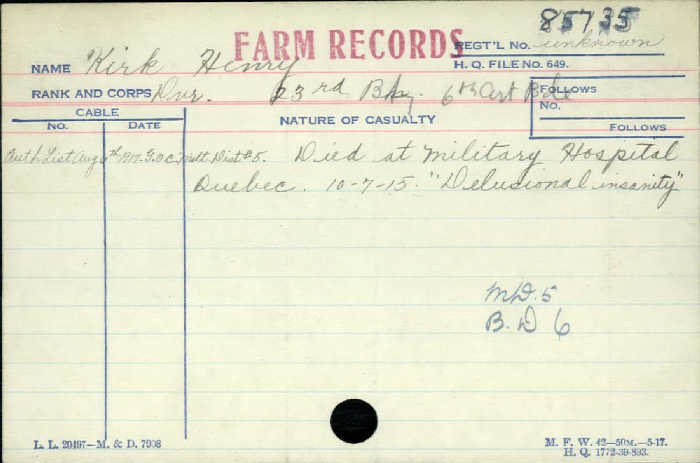 85735
FARM RECORDS
REGT'L NO. unknown
NAME Kirk Henry
H. Q. FILE NO. 649.
RANK AND CORPS Dvr. 23rd Bty. 6th Art Bde
FOLLOWS
NO.
FOLLOWS
CABLE
NO. DATE
NATURE OF CASUALTY
Auth List Aug 6th 1917. G.O.C. Milt. Dist #5. Died at Military Hospital
Quebec. 10-7-15. "Delusional insanity"
M.D. 5
B. D 6
L. L. 20497—M. & D. 7908
M. F. W. 42—50M.—5-17.
H. Q. 1772-39-893.